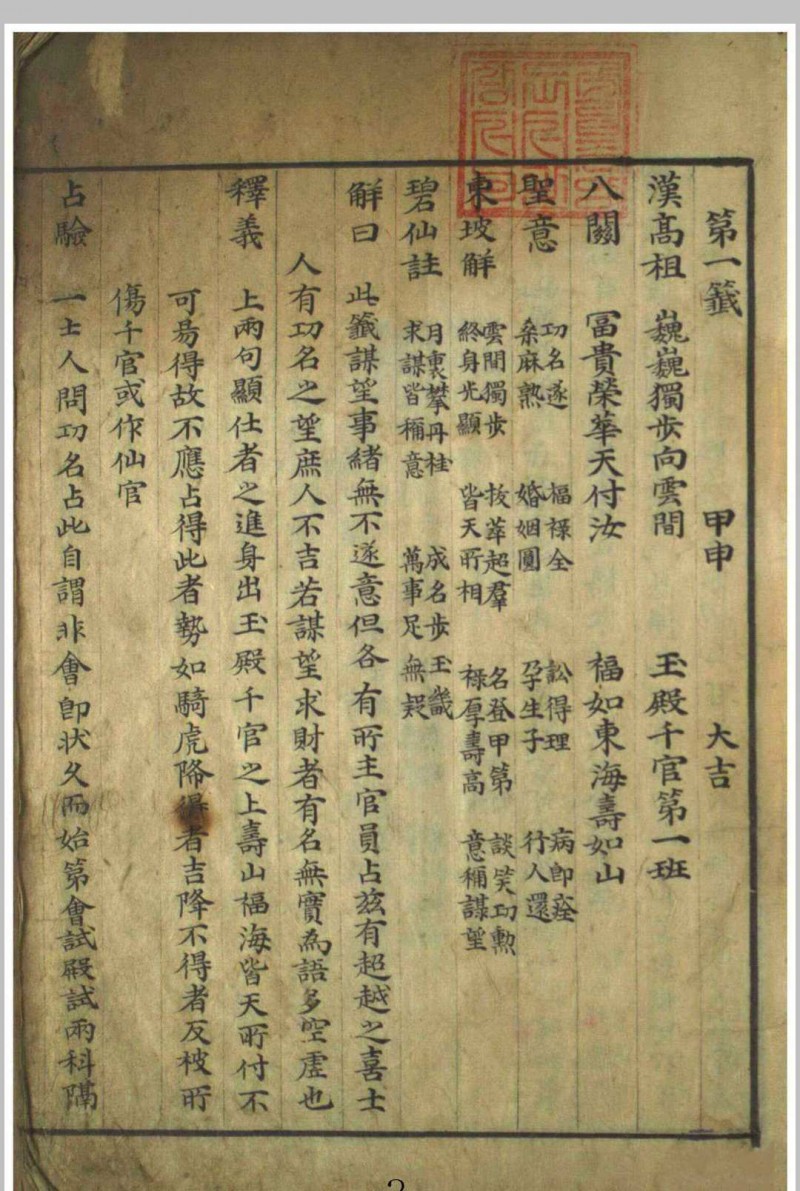 第一籤 甲申 大吉
漢高祖 巍巍獨步向雲間 玉殿千官第一班
入關 冨貴榮華天付汝 福如東海壽如山
聖意 功名遂 福祿全 訟得理 病即痊
桑麻熟 婚姻圓 孕生子 行人還
東坡解 雲間獨步 拔萃超羣 名登甲第 談笑功勳
終身光顯 皆天所相 祿厚壽高 意稱謀望
碧仙註 月裏攀丹桂 成名步玉畿
求謀皆稱意 萬事足無疑
解曰 此籤謀望事緒無不遂意但各有所主官員占兹有超越之喜士
人有功名之望庶人不吉若謀望求財者有名無實為語多空虛也
釋義 上兩句顯仕者之進身出玉殿千官之上壽山福海皆天所付不
可昜得故不應占得此者勢如騎虎降得者吉降不得者反被所
傷千官或作仙官
占驗 一士人問功名占此自謂非會即狀久而始第會試殿試兩科隔